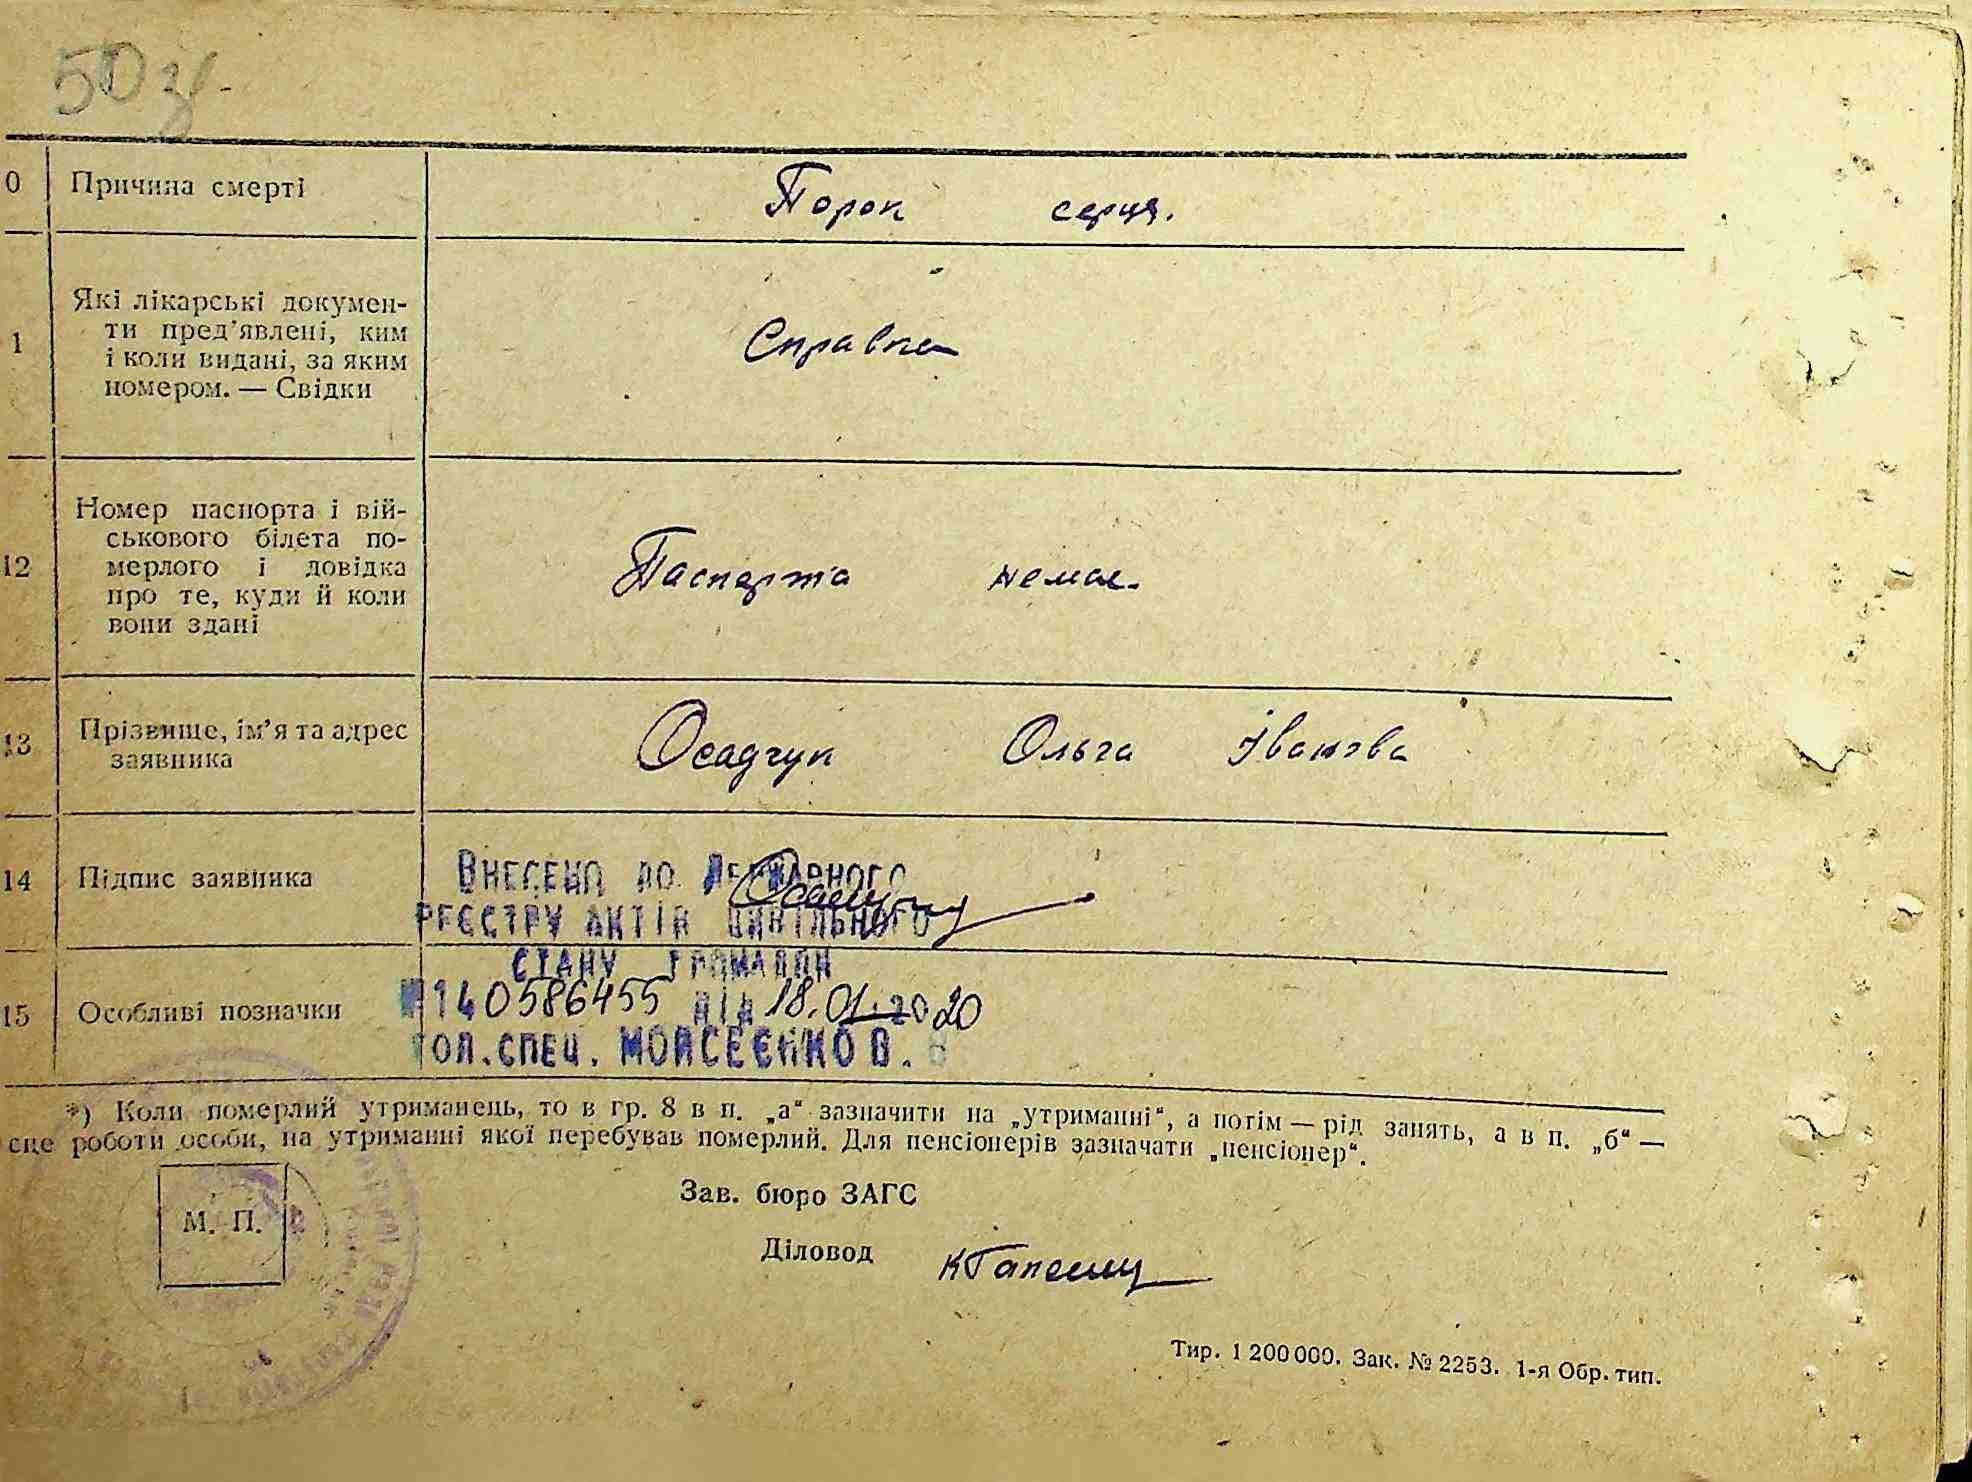 50 зв.
0 Причина смерті Порок серця.
1 Які лікарські докумен-
ти пред'явлені, ким
і коли видані, за яким
номером. — Свідки
Справка
12 Номер паспорта і вій-
ськового білета по-
мерлого і довідка
про те, куди й коли
вони здані
Паспорта немає.
13 Прізвище, ім'я та адрес
заявника
Осадчук Ольга Іванова
14 Підпис заявника
Внесено до Державного
реєстру актів цивільного
стану громадян
15 Особливі позначки
№140586455 від 18.01.2020
гол. спец. Моисеєнко В. В
*) Коли померлий утриманець, то в гр. 8 в п. „а“ зазначити на „утриманні“, а потім — рід занять, а в п. „б“ —
сце роботи особи, на утриманні якої перебував померлий. Для пенсіонерів зазначати „пенсіонер“.
М. П.
Зав. бюро ЗАГС
Діловод
Тир. 1 200 000. Зак. № 2253. 1-я Обр. тип.